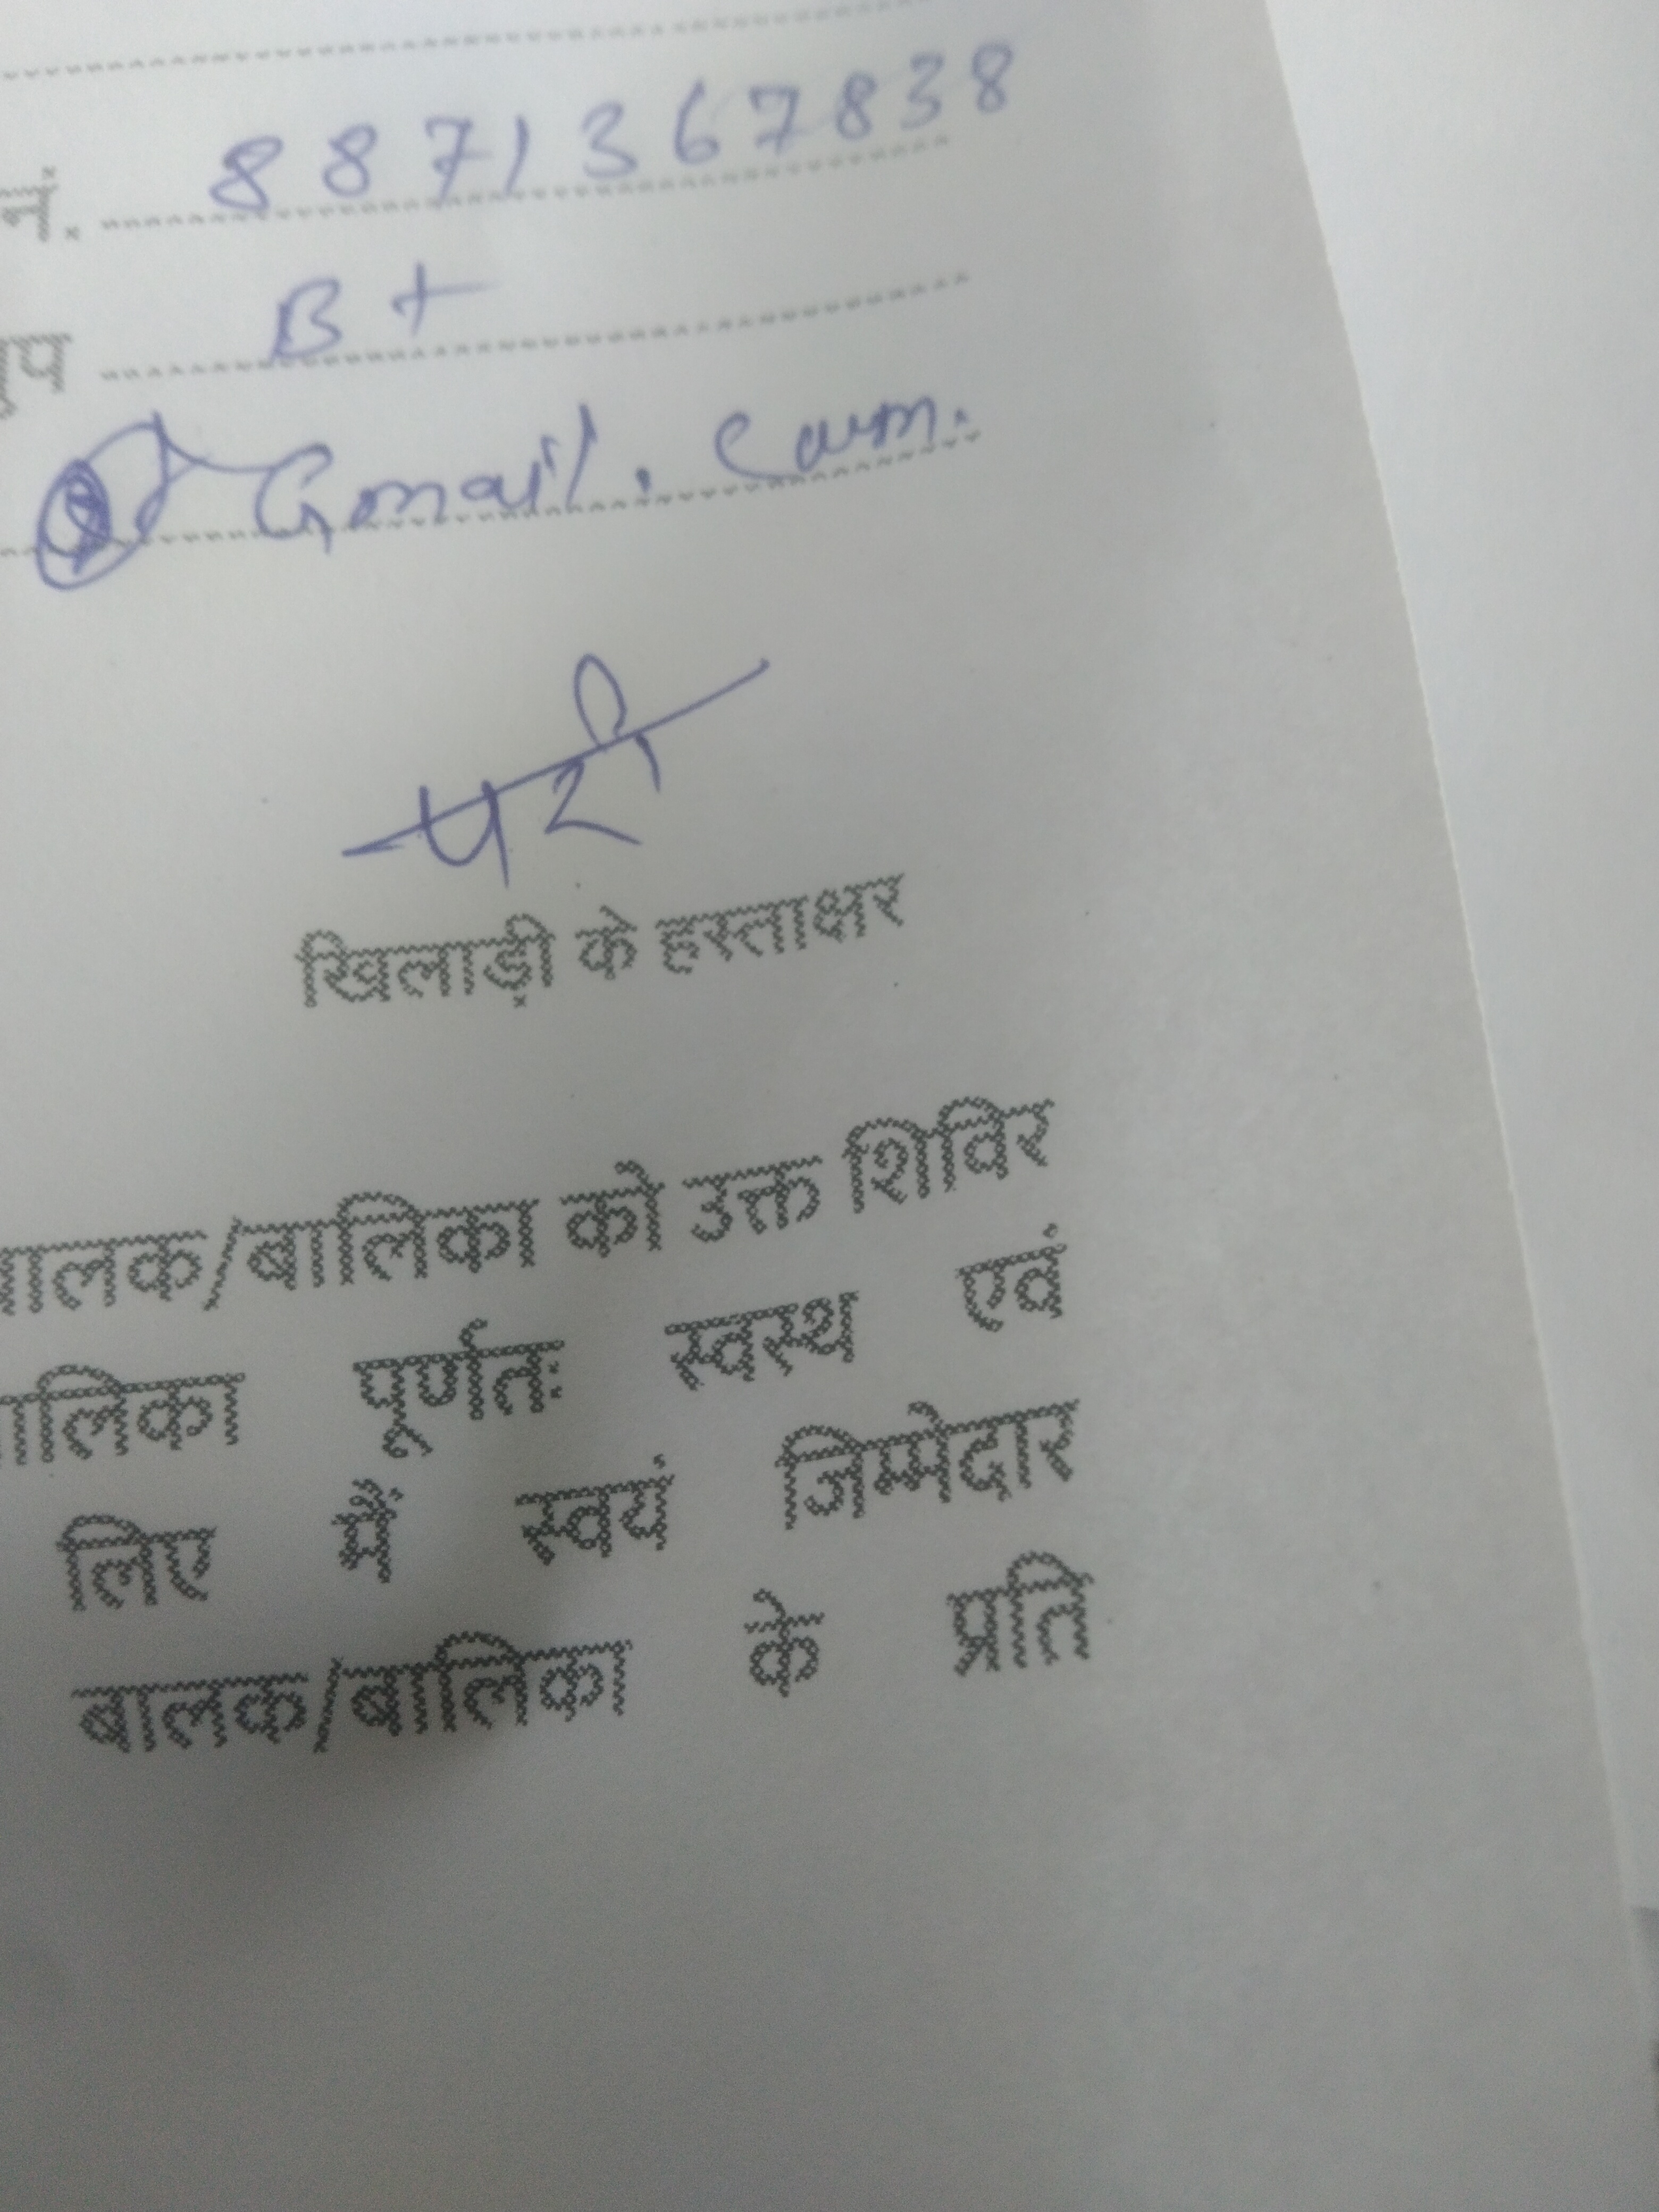 नं. 8871367838
ग्रुप B+
@ Gmail. Com.
परी
खिलाड़ी के हस्ताक्षर
बालक/बालिका को उक्त शिविर
बालिका पूर्णतः स्वस्थ एवं
लिए मैं स्वयं जिम्मेदार
बालक/बालिका के प्रति